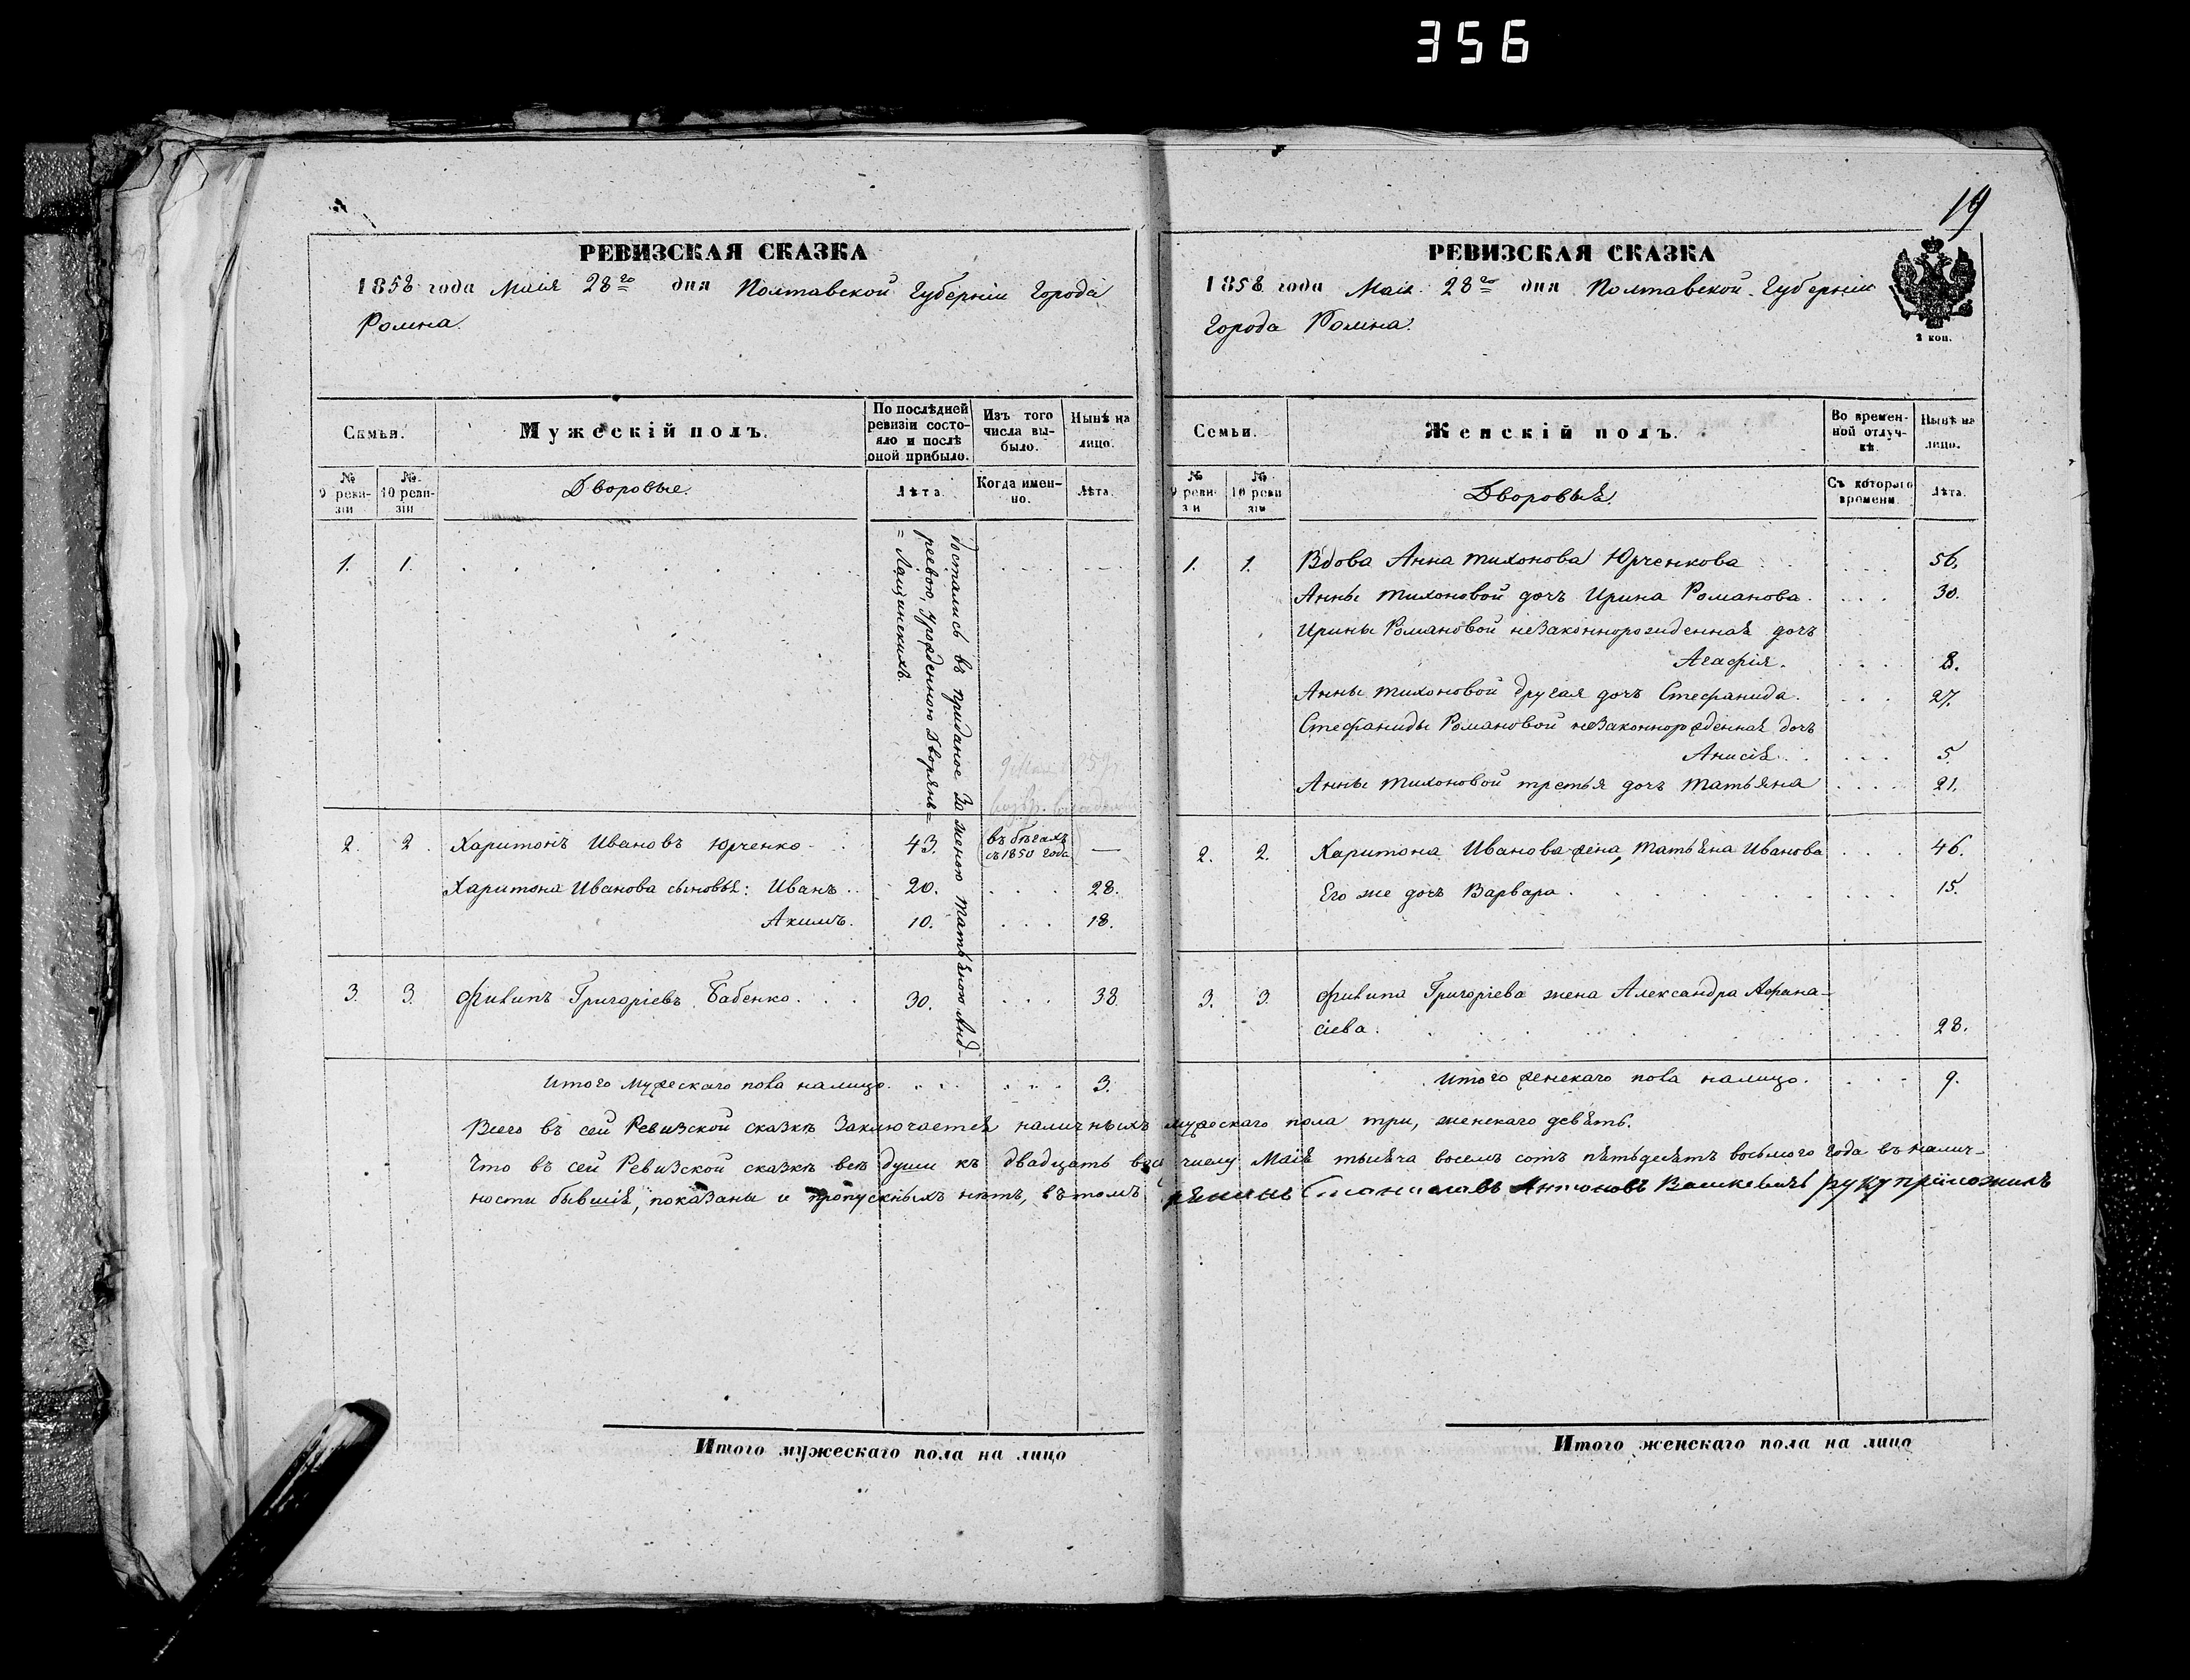 356
РЕВИЗСКАЯ СКАЗКА
1858 года Маія 28го дня Полтавской Губерніи Города
Ромна.
Семьи.
Мужескій полъ.
По послѣдней
ревизіи состо-
яло и послѣ
оной прибыло.
Изъ того
числа вы-
было.
Нынѣ на
лицо.
№
9 реви-
зіи
№
10 реви-
зіи
Дворовые.
Лѣта.
Когда имен-
но.
Лѣта.
Достались въ приданое за женою Татьяною Анд-
реевою, урожденною Дворянъ=
=Лащинскихъ.
1. 1.
2. 2. Харитонъ Ивановъ Юрченко 43. въ бѣгахъ
съ 1850 года —
Харитона Иванова сыновья: Иванъ 20. 28.
Акимъ. 10. 18.
3. 3. Филипъ Григоріевъ Бабенко. 30. 38.
Итого мужескаго пола налицо. 3.
19
РЕВИЗСКАЯ СКАЗКА
1858 года Маія 28го дня Полтавской Губерніи
Города Ромна.
2 коп.
Семьи.
Женскій полъ.
Во времен-
ной отлуч-
кѣ.
Нынѣ на
лицо.
№
9 реви-
зіи
№
10 реви
зіи
Дворовыя.
Съ котораго
времени.
Лѣта.
1. 1. Вдова Анна Тихонова Юрченкова 56.
Анны Тихоновой дочь Ирина Романова. 30.
Ирины Романовой незаконнорожденная дочь
Агафія. 8.
Анны Тихоновой другая дочь Стефанида. 27.
Стефаниды Романовой незаконнорожденная дочь
Анисія. 5.
Анны Тихоновой третья дочь Татьяна 21.
2. 2. Харитона Иванова жена, Татьяна Иванова 46.
Его же дочь Варвара. 15.
3. 3. Филипа Григоріева жена Александра Афана-
сіева. 28.
Итого женскаго пола налицо. 9.
Всего въ сей Ревизской сказкѣ заключается наличныхъ мужескаго пола три, женскаго девять.
Что въ сей Ревизской сказкѣ всѣ души къ двадцать числу Маія тысяча восемь сотъ пятьдесятъ восьмого года въ налич-
ности бывшія, показаны и пропускныхъ нѣтъ, въ томъ Станиславъ Антоновъ рукуприложилъ
Итого мужескаго пола на лицо
Итого женскаго пола на лицо